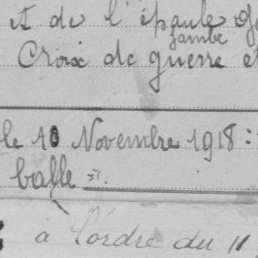 et de l'épaule
jambe
Croix de guerre et
le 10 Novembre 1918 :
balle =".
à l'ordre du 11